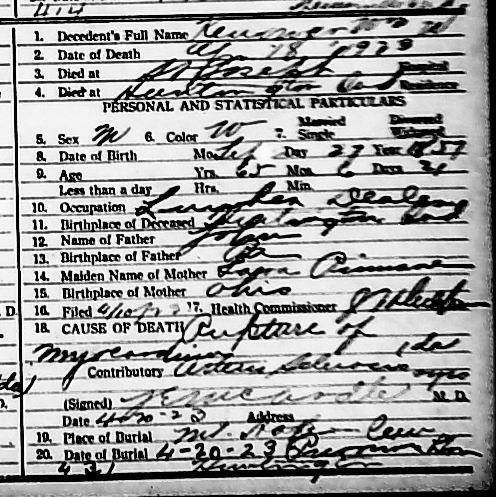 414
1. Decedent's Full Name
2. Date of Death Apr 18 1923
3. Died at St Joseph Hospital
4. Died at Huntington Ind Residence
PERSONAL AND STATISTICAL PARTICULARS
5. Sex M 6. Color W 7. Married Single Divorced Widowed
8. Date of Birth Mo. Sep Day 27 Year 1857
9. Age Yrs. 65 Mos. 6 Days 21
Less than a day Hrs. Min.
10. Occupation Lumber Dealer
11. Birthplace of Deceased Huntington Ind
12. Name of Father John
13. Birthplace of Father Pa
14. Maiden Name of Mother
15. Birthplace of Mother Ohio
16. Filed 17. Health Commissioner
18. CAUSE OF DEATH Rupture of
Myocardium 1 da
Contributory Arterio Sclerosis yrs
(Signed) M. D.
Date 4-20-23 Address
19. Place of Burial Mt. Hope Cem
20. Date of Burial 4-20-23
431 Huntington